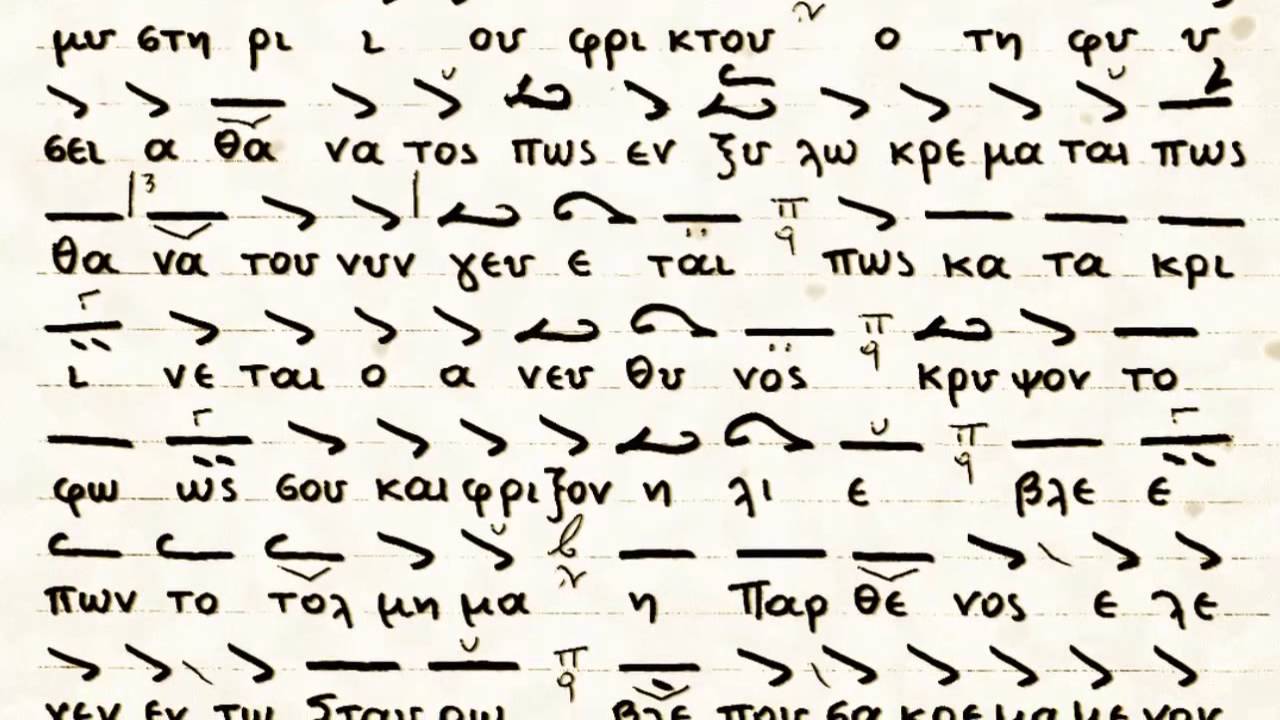 μυ στη ρι ι ου φρι κτου ο τη φυ υ
σει α θα να τος πως εν ξυ λω κρε μα ται πως
θα να του νυν γευ ε ται πως κα τα κρι
ι νε ται ο α νευ θυ νος κρυ ψον το
φω ως σου και φρι ξον η λι ε βλε ε
πων το τολ μη μα η Παρ θε νος ε λε
γεν εν τω Σταυ ρω βλε που σα κρε μα με νον